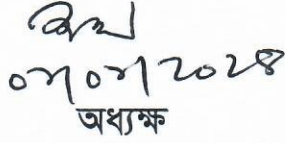 ০৭।০৭।২০২৪
অধ্যক্ষ